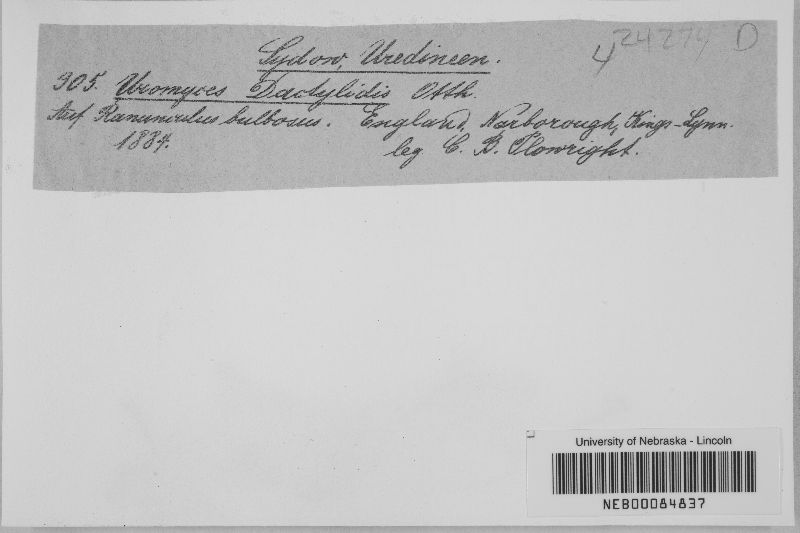 Sydow, Uredineen.
424274 D
905. Uromyces Dactylidis Otth.
Auf Ranunculus bulbosus. England, Narborough, Kings-Lynn.
1884.
leg C. B. Plowright.
University of Nebraska - Lincoln
NEB00084837